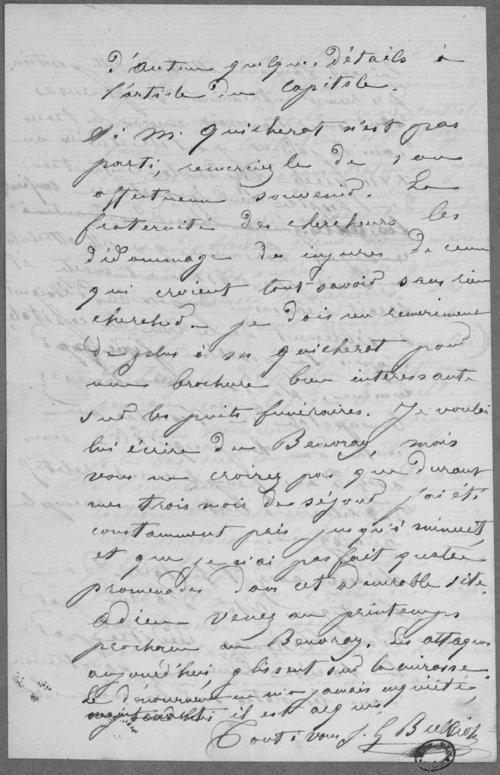 d'Autun quelques détails à
l'article du Capitole.
Si M. Quicherat n'est pas
parti, remerciez le de son
affectueux souvenir. La
fraternité des chercheurs les
dédommage des injures de ceux
qui croient tout savoir sans rien
chercher. Je dois un remerciement
de plus à M. Quicherat pour
une brochure bien intéressante
sur les puits funéraires. Je voulais
lui écrire du Beuvray, mais
vous ne croirez pas que durant
mes trois mois de séjour j'ai été
constamment pris jusqu'à minuit,
et que je n'ai pas fait quatre
promenades dans cet admirable site.
Adieu venez au printemps
prochain au Beuvray. Les attaques
aujourd'hui glissent sur la cuirasse.
Le dénouement ne m'a jamais inquiété,
il est acquis.
Tout à vous J. G. Bulliot